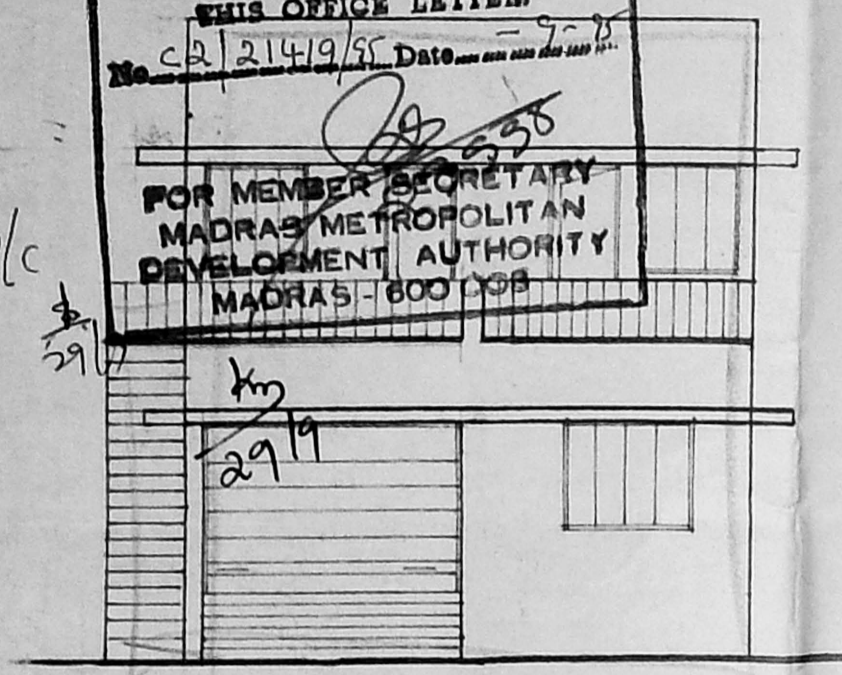 THIS OFFICE LETTER.
No. C2/21419/95 Date - 9 - 95
FOR MEMBER SECRETARY
MADRAS METROPOLITAN
DEVELOPMENT AUTHORITY
MADRAS - 600 008
/c
29/
29/9